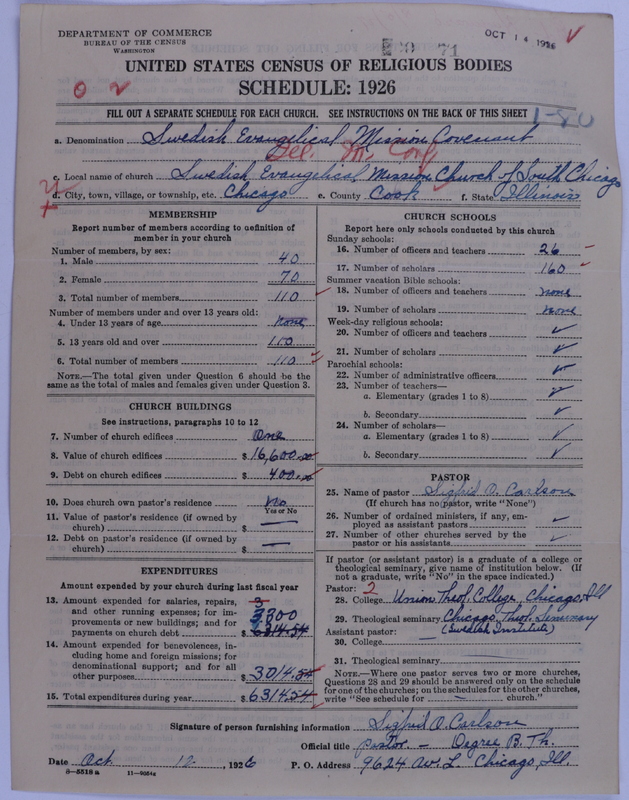 DEPARTMENT OF COMMERCE
BUREAU OF THE CENSUS
WASHINGTON
OCT 14 1926
UNITED STATES CENSUS OF RELIGIOUS BODIES
SCHEDULE: 1926
FILL OUT A SEPARATE SCHEDULE FOR EACH CHURCH. SEE INSTRUCTIONS ON THE BACK OF THIS SHEET
1-80
a. Denomination Swedish Evangelical Mission Covenant
c. Local name of church Swedish Evangelical Mission Church of South Chicago
d. City, town, village, or township, etc. Chicago e. County Cook f. State Illinois
MEMBERSHIP
Report number of members according to definition of
member in your church
Number of members, by sex:
1. Male 40
2. Female 70
3. Total number of members 110
Number of members under and over 13 years old:
4. Under 13 years of age none
5. 13 years old and over 110
6. Total number of members 110
NOTE.—The total given under Question 6 should be the
same as the total of males and females given under Question 3.
CHURCH BUILDINGS
See instructions, paragraphs 10 to 12
7. Number of church edifices One
8. Value of church edifices $ 16,600.00
9. Debt on church edifices $ 400.00
10. Does church own pastor's residence No
Yes or No
11. Value of pastor's residence (if owned by
church) $ —
12. Debt on pastor's residence (if owned by
church) $ —
EXPENDITURES
Amount expended by your church during last fiscal year
13. Amount expended for salaries, repairs,
and other running expenses; for im-
provements or new buildings; and for
payments on church debt 3300
$ 6314.54
14. Amount expended for benevolences, in-
cluding home and foreign missions; for
denominational support; and for all
other purposes $ 3014.54
15. Total expenditures during year $ 6314.54
CHURCH SCHOOLS
Report here only schools conducted by this church
Sunday schools:
16. Number of officers and teachers 26
17. Number of scholars 160
Summer vacation Bible schools:
18. Number of officers and teachers none
19. Number of scholars none
Week-day religious schools:
20. Number of officers and teachers
21. Number of scholars
Parochial schools:
22. Number of administrative officers
23. Number of teachers—
a. Elementary (grades 1 to 8)
b. Secondary
24. Number of scholars—
a. Elementary (grades 1 to 8)
b. Secondary
PASTOR
25. Name of pastor Sigfrid O. Carlson
(If church has no pastor, write "None")
26. Number of ordained ministers, if any, em-
ployed as assistant pastors
27. Number of other churches served by the
pastor or his assistants
If pastor (or assistant pastor) is a graduate of a college or
theological seminary, give name of institution below. (If
not a graduate, write "No" in the space indicated.)
Pastor: 2
28. College Union Theol. College, Chicago, Ill
29. Theological seminary Chicago Theol. Seminary
Assistant pastor: (Swedish Institute)
30. College —
31. Theological seminary
NOTE.—Where one pastor serves two or more churches,
Questions 28 and 29 should be answered only on the schedule
for one of the churches; on the schedules for the other churches,
write "See schedule for — church."
Signature of person furnishing information Sigfrid O. Carlson
Official title Pastor — Degree B. Th.
Date Oct. 12, 1926 P. O. Address 9624 Av. L. Chicago, Ill.
8-5518a 11-9054